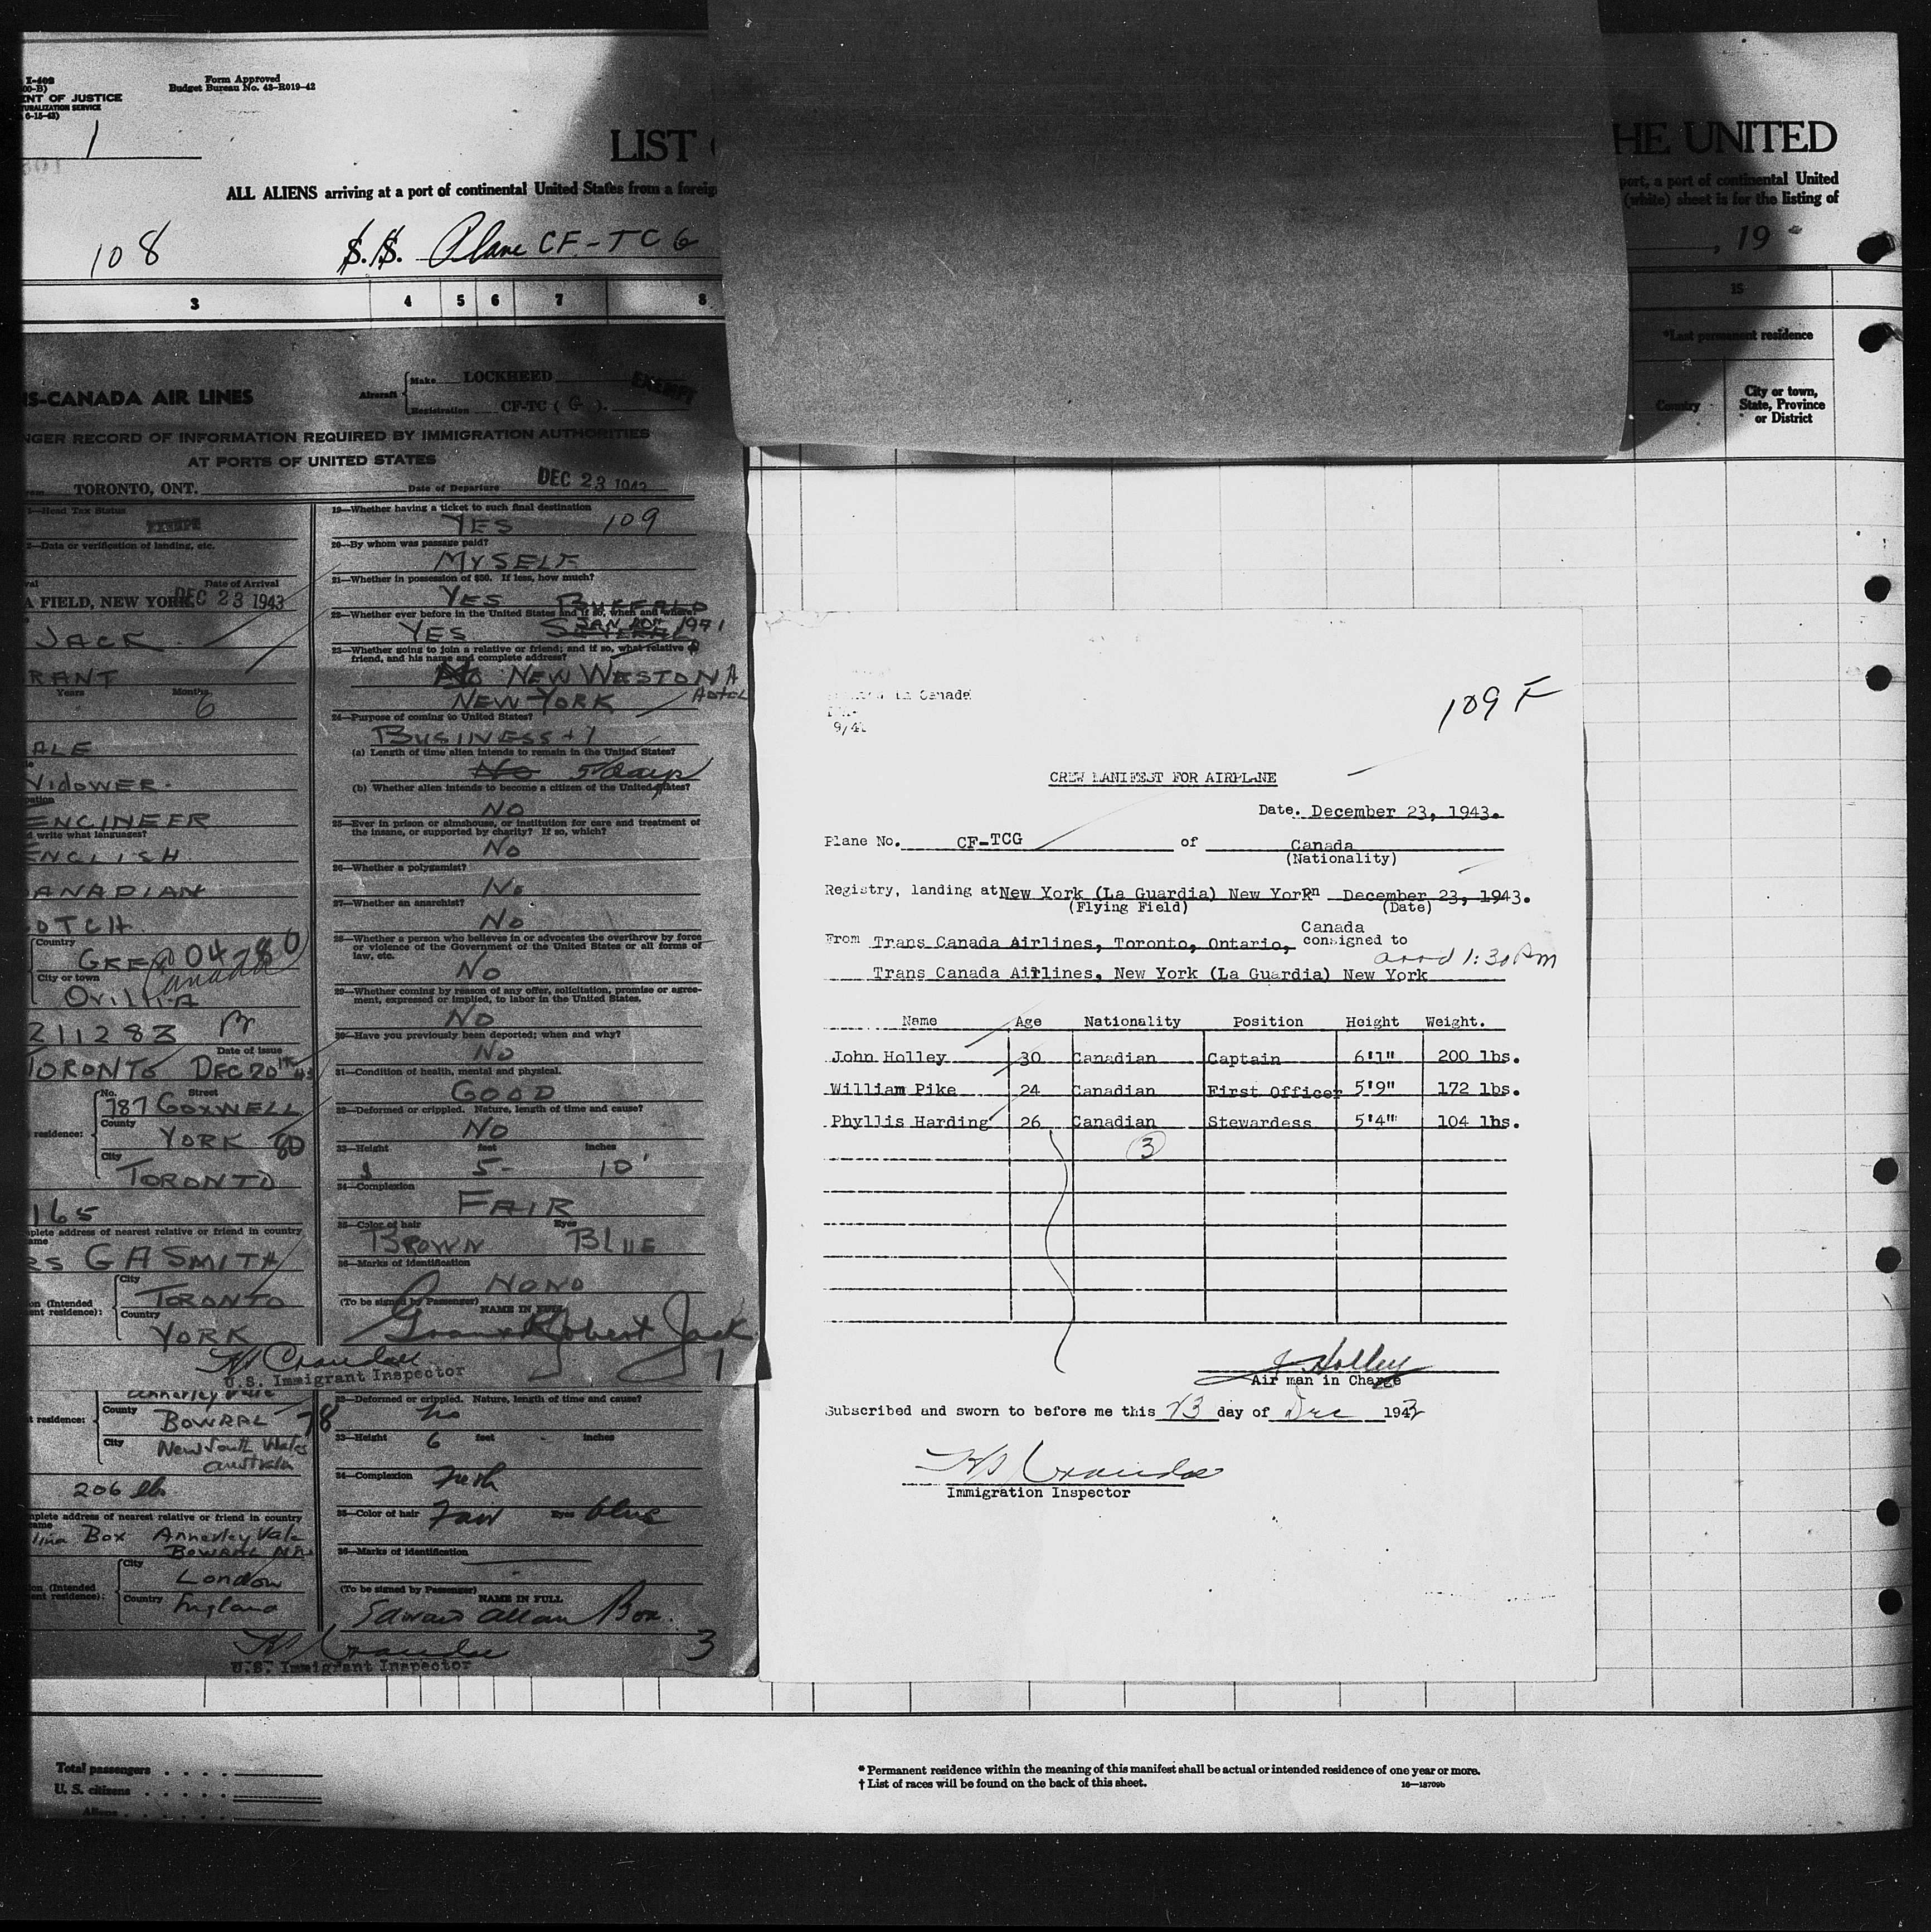 I-408
00-B)
ENT OF JUSTICE
TURALIZATION SERVICE
6-15-43)
Form Approved
Budget Bureau No. 43-R019-42
1
LIST
HE UNITED
ALL ALIENS arriving at a port of continental United States from a foreig
port, a port of continental United
(white) sheet is for the listing of
108
S.S. Plane CF-TCG
, 19
3 4 5 6 7 8
15
*Last permanent residence
Country
City or town,
State, Province
or District
S-CANADA AIR LINES
Aircraft
Make LOCKHEED
Registration CF-TC ( G ).
EXEMPT
NGER RECORD OF INFORMATION REQUIRED BY IMMIGRATION AUTHORITIES
AT PORTS OF UNITED STATES
TORONTO, ONT.
Date of Departure DEC 23 1943
1—Head Tax Status
EXEMPT
2—Date or verification of landing, etc.
Date of Arrival
A FIELD, NEW YORK DEC 23 1943
JACK
RANT
Years Months
6
ALE
WIDOWER
ENGINEER
d write what languages?
ENGLISH
ANADIAN
OTCH
Country
City or town
Canada
ORILLIA
211283
Date of issue
TORONTO DEC 20TH 43
No. Street
787 COXWELL
County
residence: YORK 80
City
TORONTO
165
plete address of nearest relative or friend in country
ame
RS G A SMITH
City
on (Intended
ent residence): TORONTO
Country
YORK
U.S. Immigrant Inspector
19—Whether having a ticket to such final destination
YES 109
20—By whom was passage paid?
MYSELF
21—Whether in possession of $50. If less, how much?
YES BUFFALO
22—Whether ever before in the United States and if so, when and where?
YES SEVERAL JAN 10TH 1941
23—Whether going to join a relative or friend; and if so, what relative or
friend, and his name and complete address?
No NEW WESTON
HOTEL
NEW YORK
24—Purpose of coming to United States?
BUSINESS
(a) Length of time alien intends to remain in the United States?
No 5 days
(b) Whether alien intends to become a citizen of the United States?
NO
25—Ever in prison or almshouse, or institution for care and treatment of
the insane, or supported by charity? If so, which?
No
26—Whether a polygamist?
No
27—Whether an anarchist?
No
28—Whether a person who believes in or advocates the overthrow by force
or violence of the Government of the United States or all forms of
law, etc.
No
29—Whether coming by reason of any offer, solicitation, promise or agree-
ment, expressed or implied, to labor in the United States.
No
30—Have you previously been deported; when and why?
No
31—Condition of health, mental and physical.
GOOD
32—Deformed or crippled. Nature, length of time and cause?
NO
33—Height feet inches
5 10
34—Complexion
FAIR
35—Color of hair Eyes
BROWN BLUE
36—Marks of identification
NONO
(To be signed by Passenger)
NAME IN FULL
Grant Robert Jack
1
Annerley Vale
County
t residence: BOWRAL 78
City
New South Wales
Australia
206 lb
plete address of nearest relative or friend in country
ame
Box Annerley Vale
BOWRAL
City
on (Intended
ent residence): London
Country England
U.S. Immigrant Inspector
32—Deformed or crippled. Nature, length of time and cause?
No
33—Height 6 feet - inches
34—Complexion
Fresh
35—Color of hair Fair Eyes blue
36—Marks of identification
(To be signed by Passenger)
NAME IN FULL
Edward Allan Box.
3
in Canada
9/4
109 F
CREW MANIFEST FOR AIRPLANE
Date. December 23, 1943.
Plane No. CF-TCG of Canada
(Nationality)
Registry, landing at New York (La Guardia) New York on December 23, 1943.
(Flying Field) (Date)
From Trans Canada Airlines, Toronto, Ontario, Canada
consigned to
arrd 1:30 PM
Trans Canada Airlines, New York (La Guardia) New York
Name Age Nationality Position Height Weight.
John Holley 30 Canadian Captain 6'1" 200 lbs.
William Pike 24 Canadian First Officer 5'9" 172 lbs.
Phyllis Harding 26 Canadian Stewardess 5'4" 104 lbs.
3
J. Holley
Air man in Charge
Subscribed and sworn to before me this 23 day of Dec 1943
Immigration Inspector
Total passengers
U. S. citizens
Aliens
* Permanent residence within the meaning of this manifest shall be actual or intended residence of one year or more.
† List of races will be found on the back of this sheet.
16—18709b